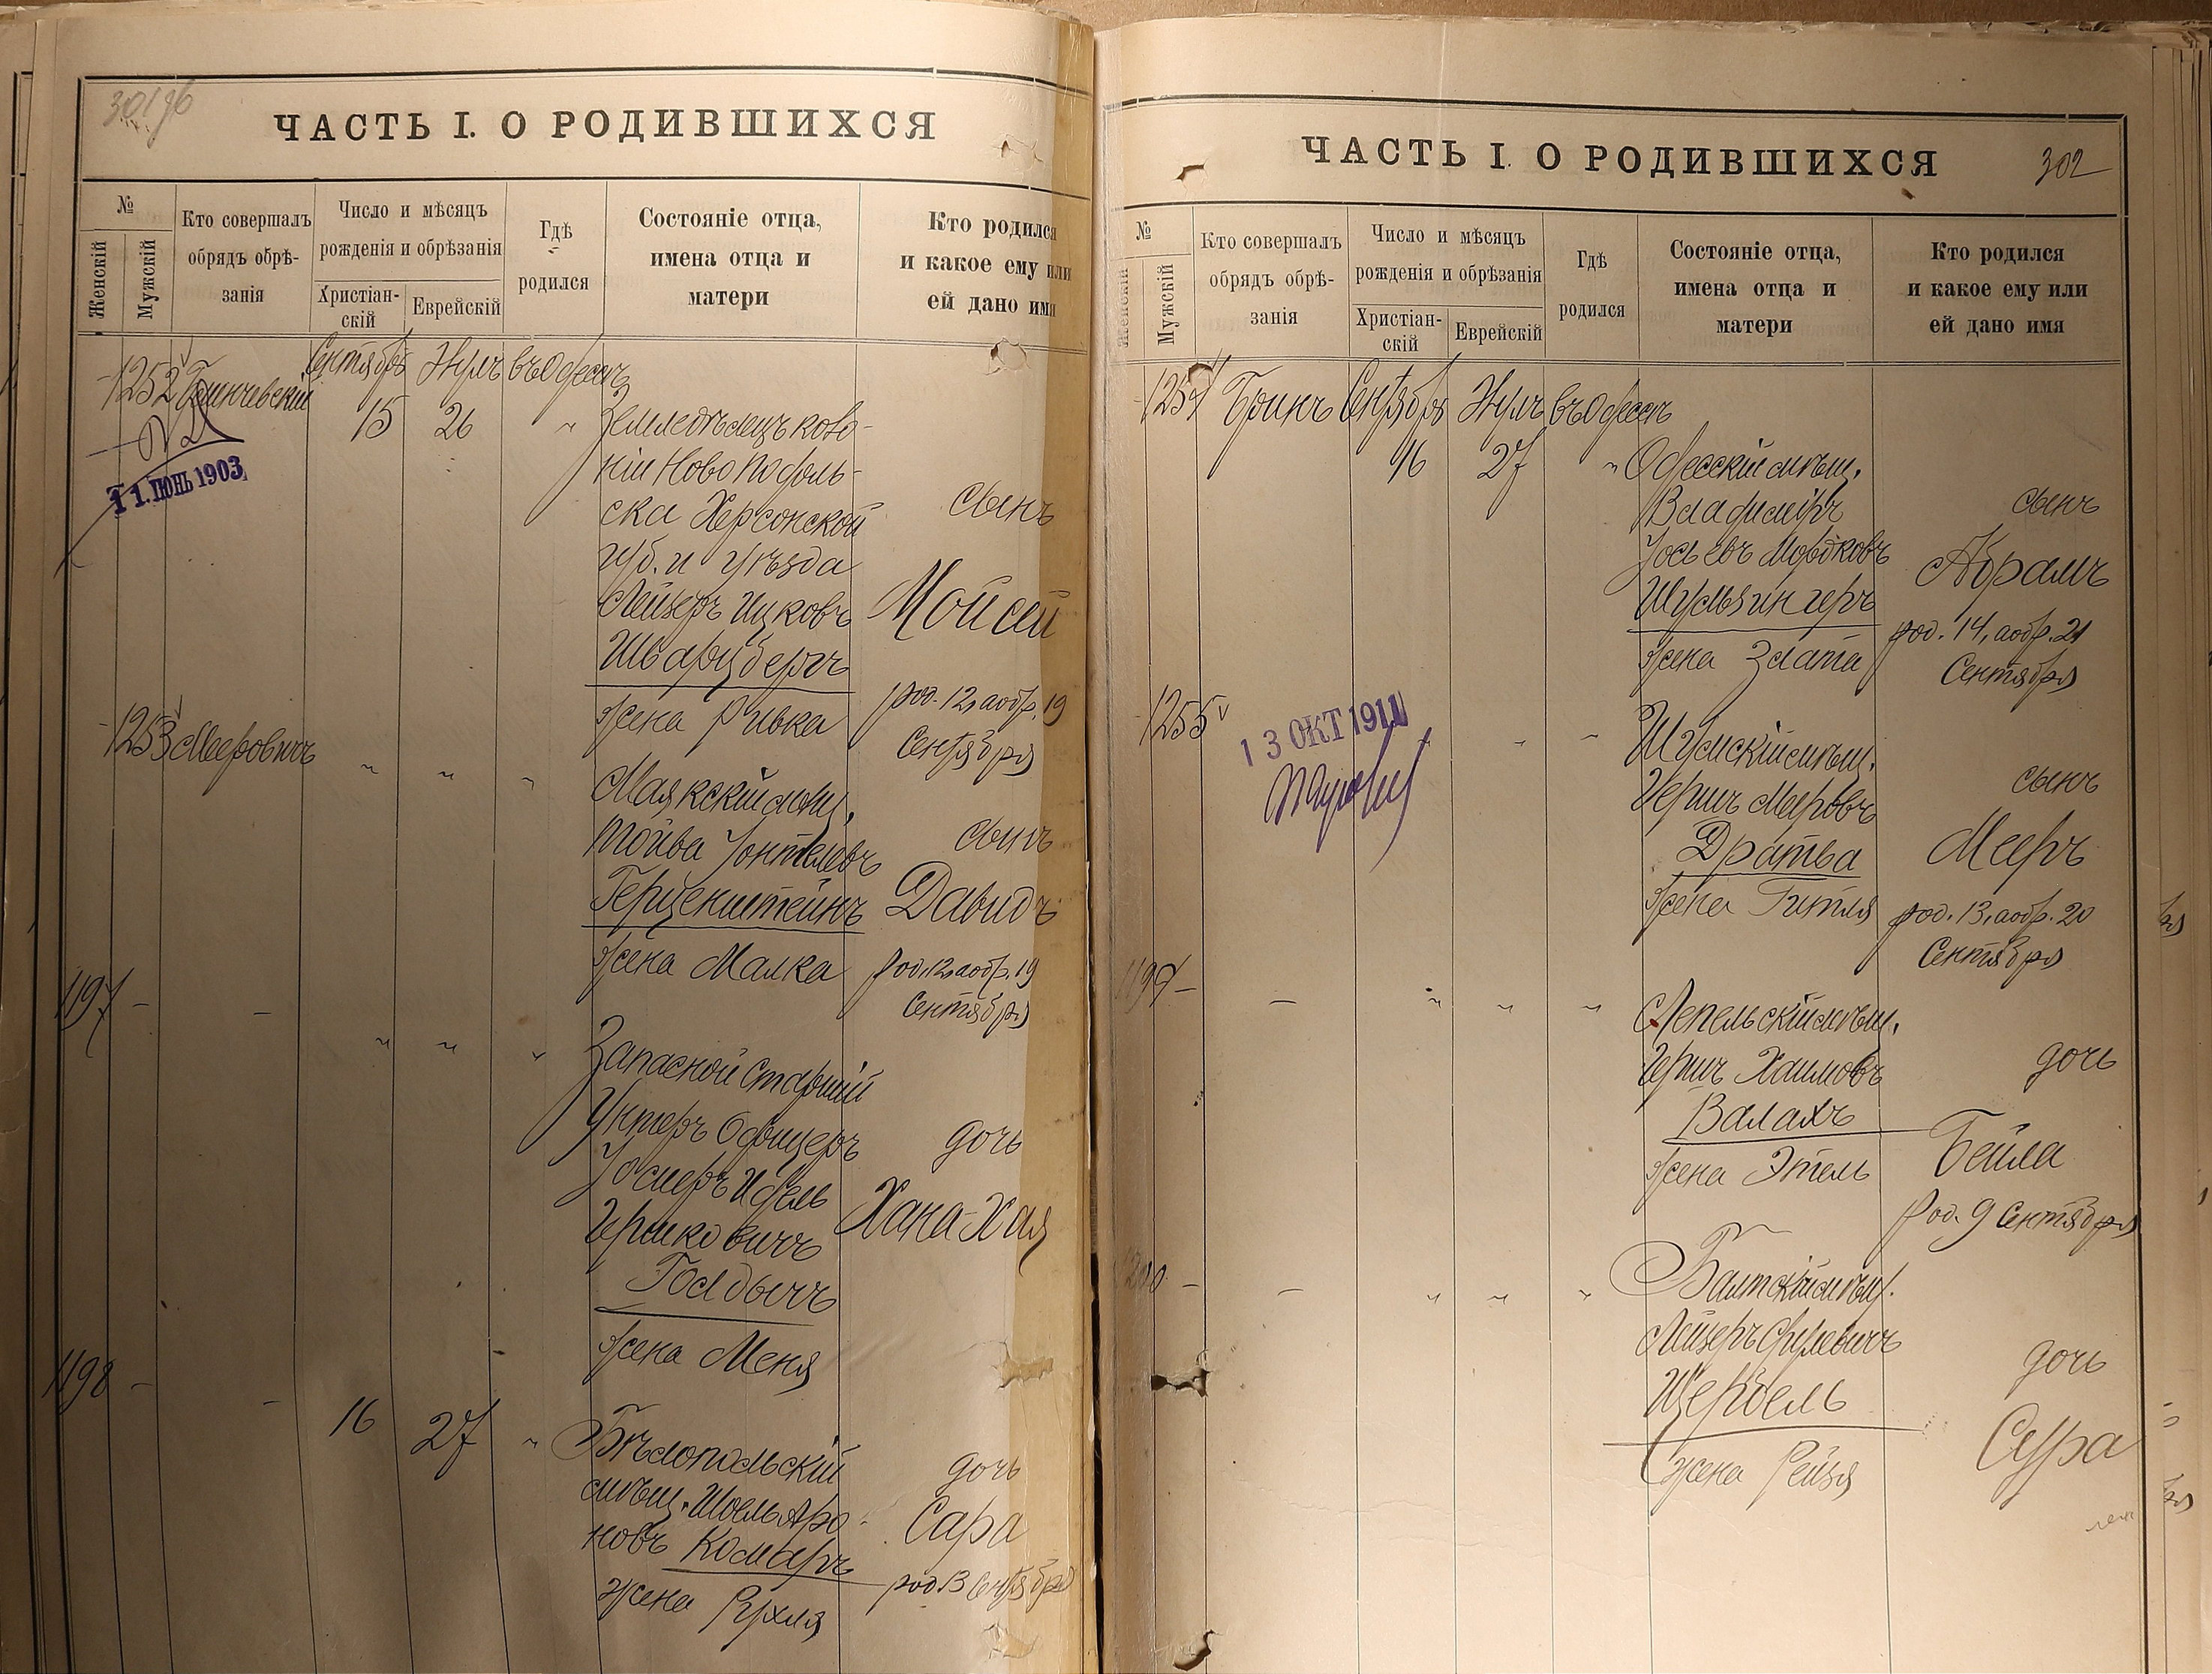 ЧАСТЬ I. О РОДИВШИХСЯ
№
Женскій
Мужскій
Кто совершалъ
обрядъ обрѣ-
занія
Число и мѣсяцъ
рожденія и обрѣзанія
Христіан-
скій
Еврейскій
Гдѣ
родился
Состояніе отца,
имена отца и
матери
Кто родился
и какое ему или
ей дано имя
1252
Сентябрь Элулъ въ Одессѣ
15 26 "
Земледѣлецъ коло-
ніи Новоподоль-
ска Херсонской
губ. и уѣзда
Лейзеръ Ицковъ
Шварцбергъ
жена Ривка
сынъ
Мойсей
род. 12, а обр. 19
Сентября
11. ІЮНЬ 1903
1253 Мееровичъ " " "
Маякскій мѣщ.
Тойва Іонтелевъ
Герценштейнъ
жена Малка
сынъ
Давидъ
род. 12, а обр. 19
Сентября
1197 - - " " "
Запасной Старшій
Унтеръ Офицеръ
Іосиеръ Идель
Гершковичъ
жена Меня
дочь
Хана-Хая
1198 - - 16 27 "
Бѣлопольскій
мѣщ. Шоель Аро-
новъ Комаръ
жена Рухля
дочь
Сара
род. 13 Сентября
ЧАСТЬ I. О РОДИВШИХСЯ
302
№
Женскій
Мужскій
Кто совершалъ
обрядъ обрѣ-
занія
Число и мѣсяцъ
рожденія и обрѣзанія
Христіан-
скій
Еврейскій
Гдѣ
родился
Состояніе отца,
имена отца и
матери
Кто родился
и какое ему или
ей дано имя
1254 Бринъ Сентябрь Элулъ въ Одессѣ
16 27 "
Одесскій мѣщ.
Владиміръ
Іосьевъ Мордковъ
Шульзингеръ
жена Злата
сынъ
Абрамъ
род. 14, а обр. 21
Сентября
1255 " " "
13 ОКТ 1911
Шумскій мѣщ.
Гершъ Мееровъ
Дратва
жена Гитля
сынъ
Мееръ
род. 13, а обр. 20
Сентября
1199 - - " " "
Лепельскій мѣщ.
Гершъ Хаимовъ
Валахъ
жена Этель
дочь
Бейла
род. 9 Сентября
1200 - - " " "
Балтскій мѣщ.
Лейзеръ Срулевичъ
Щербель
жена Рейзя
дочь
Сура